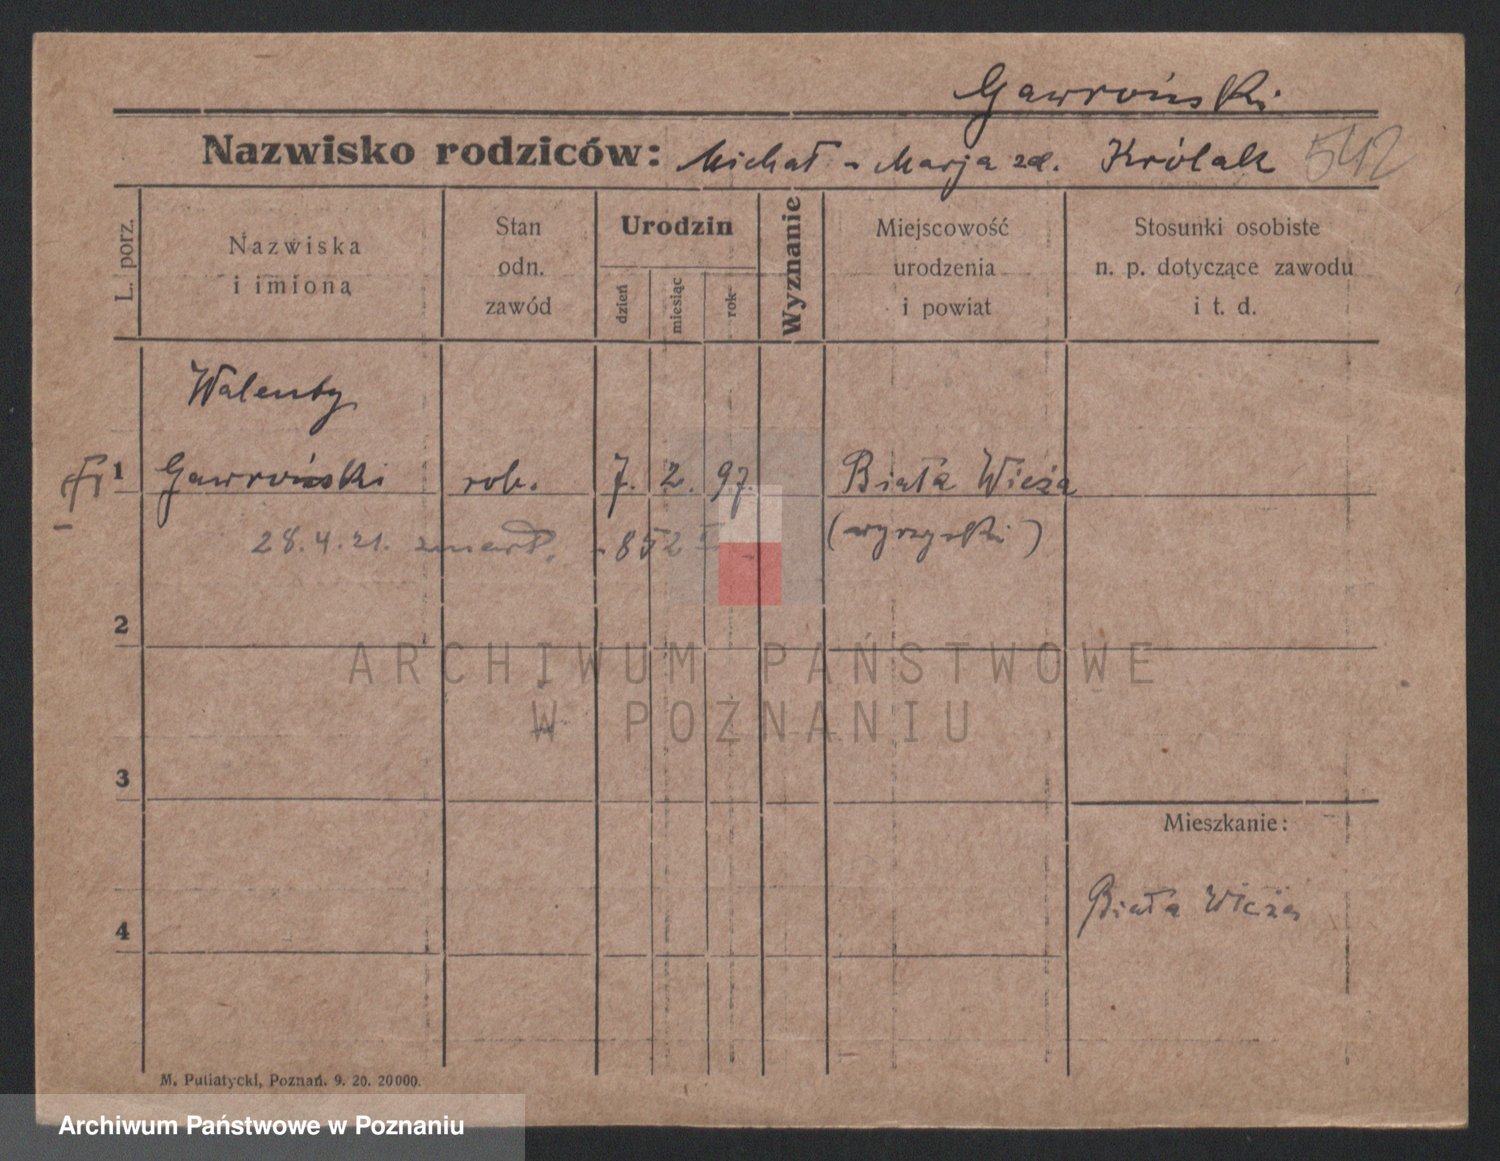 Gawroński
Nazwisko rodziców: Michał - Marja zd. Królak 542
L. porz.
Nazwiska
i imiona
Stan
odn.
zawód
Urodzin
dzień
miesiąc
rok
Wyznanie
Miejscowość
urodzenia
i powiat
Stosunki osobiste
n. p. dotyczące zawodu
i t. d.
Walenty
1 Gawroński rob. 7. 2. 97. Biała Wieża
28.4.21. zmarł. - 852
(wyrzyski)
2
ARCHIWUM PAŃSTWOWE
W POZNANIU
3
Mieszkanie:
Biała Wieża
4
M. Putiatycki, Poznań. 9. 20. 20000.
Archiwum Państwowe w Poznaniu